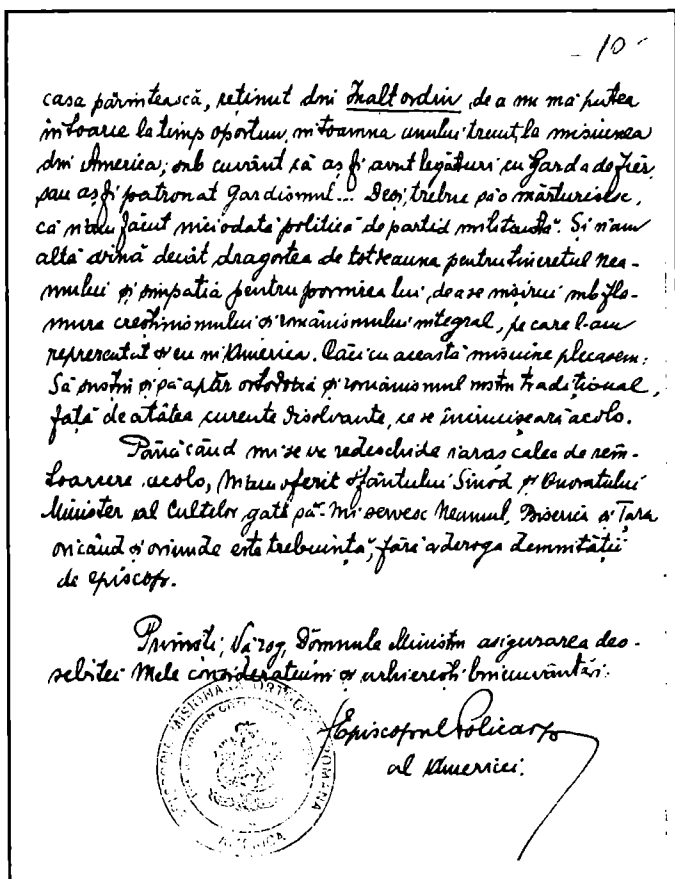 - 10 -
casa părintească, reținut din Înalt ordin, de a nu mă putea
întoarce la timp oportun, în toamna anului trecut, la misiunea
din America; sub cuvânt că aș fi avut legături cu Garda de Fier,
sau aș fi patronat Gardismul... Deși, trebue să o mărturisesc,
că n'am făcut niciodată politică de partid militantă. Și n'am
altă vină decât dragostea de totdeauna pentru tineretul nea-
mului și simpatia pentru pornirea lui, de a se înșirui sub fla-
mura creștinismului și românismului integral, pe care l-am
reprezentat și eu în America. Căci cu această misiune plecasem:
Să susțin și să apăr ortodoxia și românismul nostru tradițional,
față de atâtea curente disolvante, ce se încrucișează acolo.
Până când mi se va redeschide iarăș calea de rein-
toarcere acolo, m'am oferit Sfântului Sinod și Onoratului
Minister al Cultelor, gata să-mi servesc Neamul, Biserica și Țara
oricând și oriunde este trebuință, fără a deroga demnității
de episcop.
Primiți, Vă rog, Domnule Ministru asigurarea deo-
sebitei Mele considerațiuni și arhierești binecuvântări.
Episcopul Policarp
al Americei.
EPISCOPIA MISIONARĂ ORTODOXĂ ROMÂNĂ
AMERICA